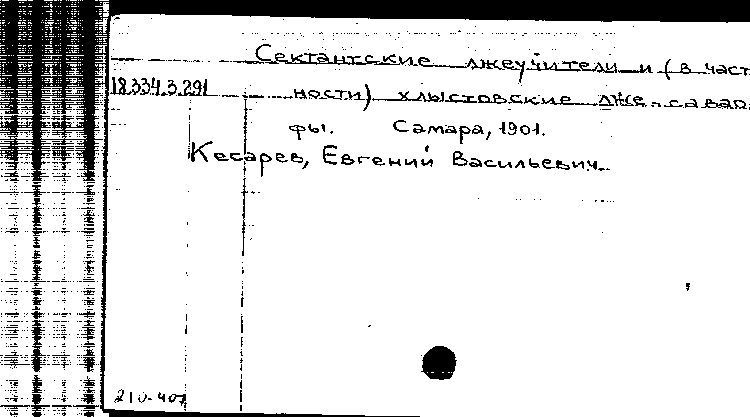 Сектантские лжеучители и (в част
18.334.3.291
ности) хлыстовские лже-савао
фы. Самара, 1901.
Кесарев, Евгений Васильевич.
210-407